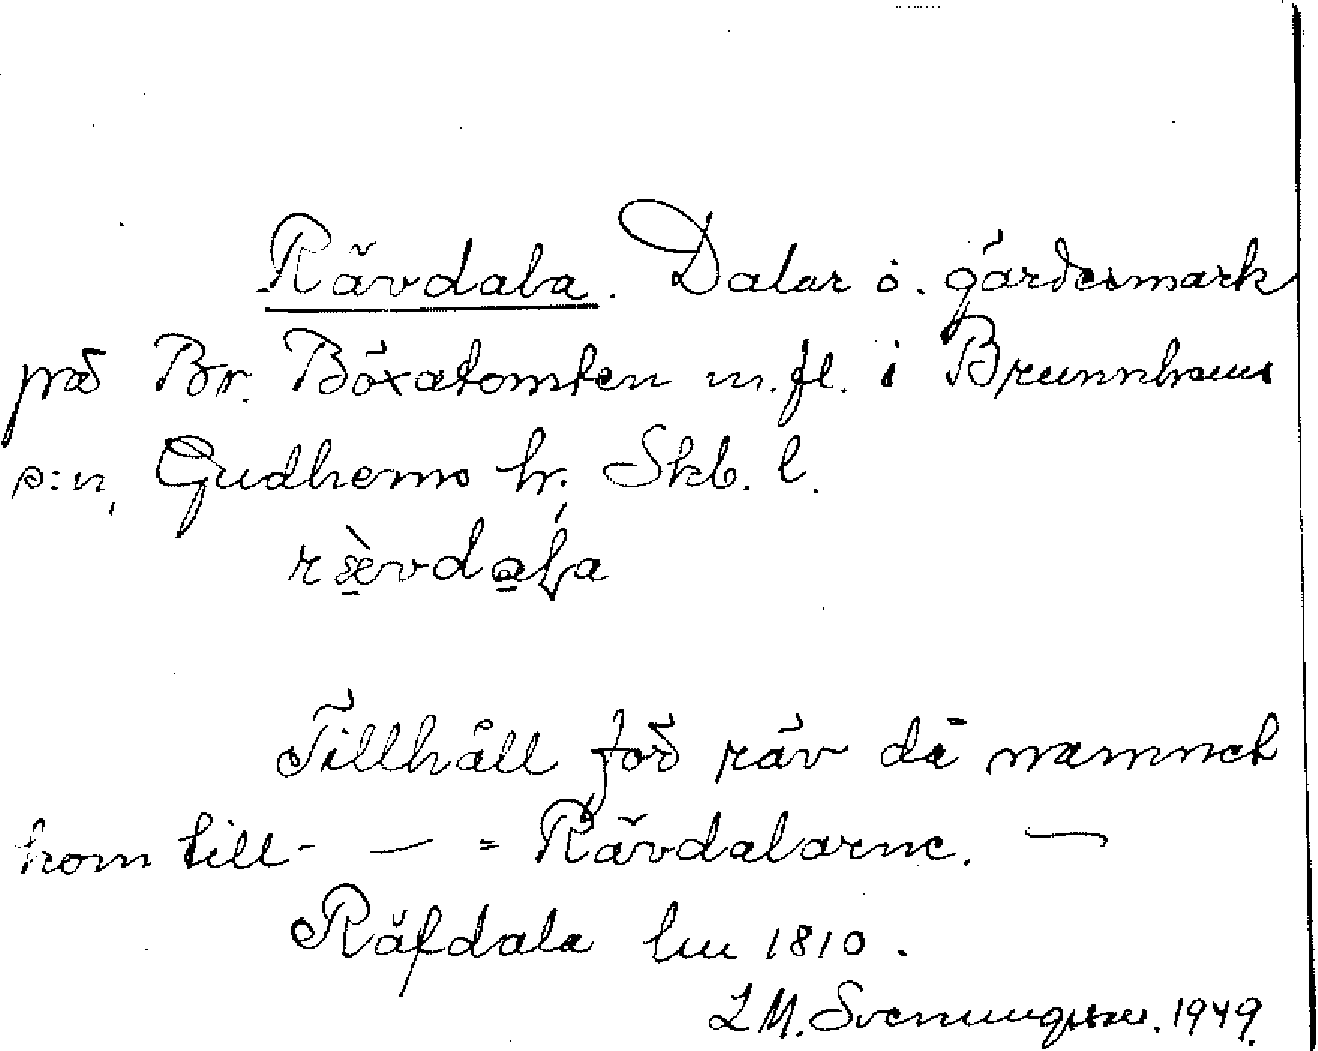 Rävdala. Dalar o. gärdesmark
på Br. Böxatomten m.fl. i Brunnhems
s:n, Gudhems hr. Skb. l.
ræ̀vdaɫa
Tillhåll för räv då namnet
kom till - — = Rävdalarne. —
Räfdala lm 1810.
L M. Svenungsson. 1949.